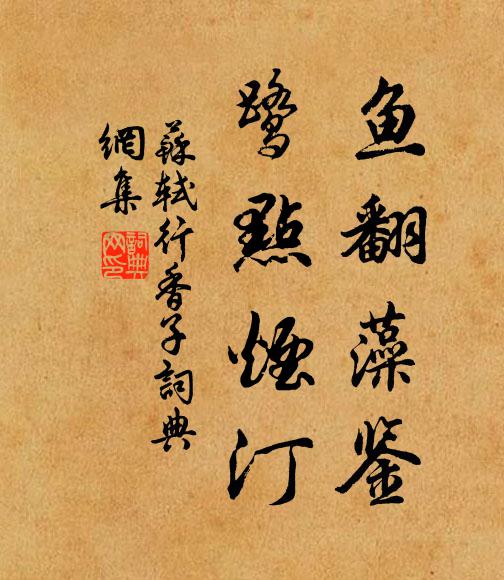 鱼翻藻鉴
鹭點烟汀
蘇軾行香子詞典
網集
詞典
网印